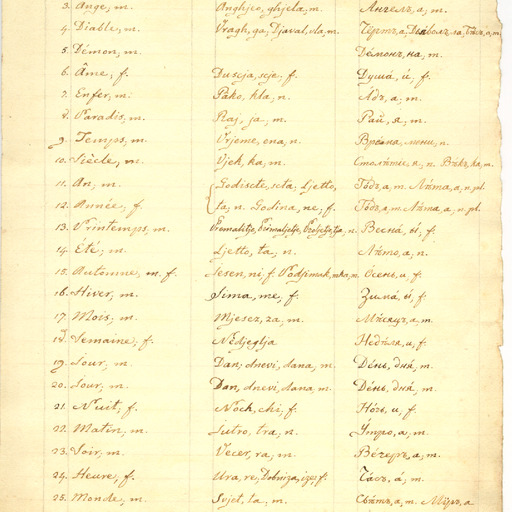 3. Ange, m. Anghjeo, ghjela, m. Ангелъ, а, m.
4. Diable, m. Vragh, ga, Djaval, vla, m. Чёртъ, а, Дїаволъ, ла, Бѣсъ, а, m.
5. Démon, m. Демонъ, на, m.
6. Âme, f. Duscja, scje, f. Душа, и́, f.
7. Enfer, m. Pako, kla, n. Адъ, а, m.
8. Paradis, m. Raj, ja, m. Рай, я, m.
9. Temps, m. Vrjeme, ena, n. Время, мени, n.
10. Siècle, m. Vjek, ka, m. Столѣтіе, я, n. Вѣкъ, ка, m.
11. An, m. Godiscte, scta, Ljetto, Годъ, а, m. Лѣта, а, n, pl.
12. Année, f. ta, n. Godina, ne, f. Годъ, а, m. Лѣта, а, n, pl.
13. Printemps, m. Весна́, ы́, f.
14. Été, m. Ljetto, ta, n. Лѣто, а, n.
15. Automne, m. f. Jesen, ni, f. Podzimak, mka, m. Осень, и, f.
16. Hiver, m. Sima, me, f. Зима́, ы́, f.
17. Mois, m. Mjesez, za, m. Мѣсяцъ, а, m.
18. Semaine, f. Nedjeglja Недѣля, и, f.
19. Jour, m. Dan, dnevi, dana, m. День, дня́, m.
20. Jour, m. Dan, dnevi, dana, m. День, дня́, m.
21. Nuit, f. Noch, chi, f. Ночь, и, f.
22. Matin, m. Jutro, tra, n. Утро, а, m.
23. Soir, m. Vecer, ra, m. Вечеръ, а, m.
24. Heure, f. Ura, re, f. Часъ, а́, m.
25. Monde, m. Svjet, ta, m. Свѣтъ, а, m. Мїръ, а